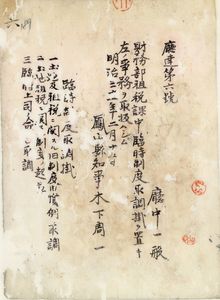 廳達第六號
廳中一般
財務部租税課中臨時制度取調掛ヲ置キ
左ノ事務ヲ取扱ハシム
明治三十一年十一月十六日
鳳山縣知事木下周一
臨時制度取調掛
一土地及租税ニ関スル旧制度慣例取調
二土地租税ニ関スル制度
三臨時土